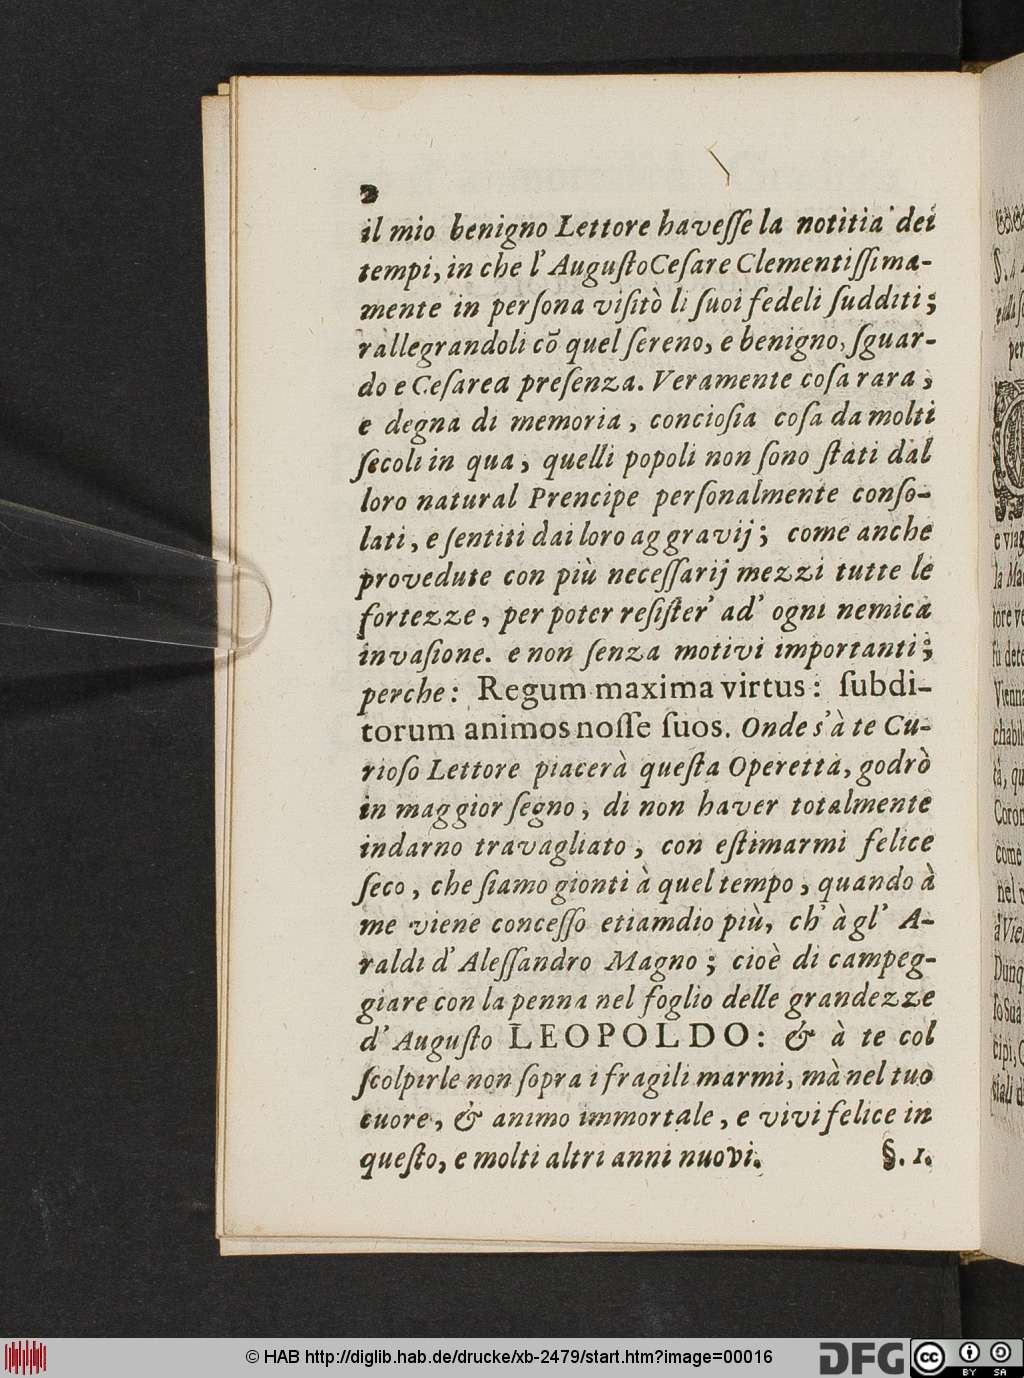 2
il mio benigno Lettore haveſſe la notitia dei
tempi, in che l' Auguſto Ceſare Clementiſſima-
mente in perſona viſitò li ſuoi fedeli ſudditi;
rallegrandoli cõ quel ſereno, e benigno, ſguar-
do e Ceſarea preſenza. Veramente coſa rara,
e degna di memoria, concioſia coſa da molti
ſecoli in qua, quelli popoli non ſono ſtati dal
loro natural Prencipe perſonalmente conſo-
lati, e ſentiti dai loro aggravij; come anche
provedute con più neceſſarij mezzi tutte le
fortezze, per poter reſiſter' ad' ogni nemica
invaſione. e non ſenza motivi importanti;
perche: Regum maxima virtus: ſubdi-
torum animos noſſe ſuos. Onde s'à te Cu-
rioſo Lettore piacerà queſta Operetta, godrò
in maggior ſegno, di non haver totalmente
indarno travagliato, con eſtimarmi felice
ſeco, che ſiamo gionti à quel tempo, quando à
me viene conceſſo etiamdio più, ch' à gl' A-
raldi d' Aleſſandro Magno; cioè di campeg-
giare con la penna nel foglio delle grandezze
d' Auguſto LEOPOLDO: & à te col
ſcolpirle non ſopra i fragili marmi, mà nel tuo
cuore, & animo immortale, e vivi felice in
queſto, e molti altri anni nuovi. §. 1.
e viag
la Mac
tore ve
fù dete
Vienna
chabil
tà, qu
Coron
come
nel v
à Vien
Dunq
lo Sua
cipi, C
© HAB http://diglib.hab.de/drucke/xb-2479/start.htm?image=00016
DFG
cc BY SA